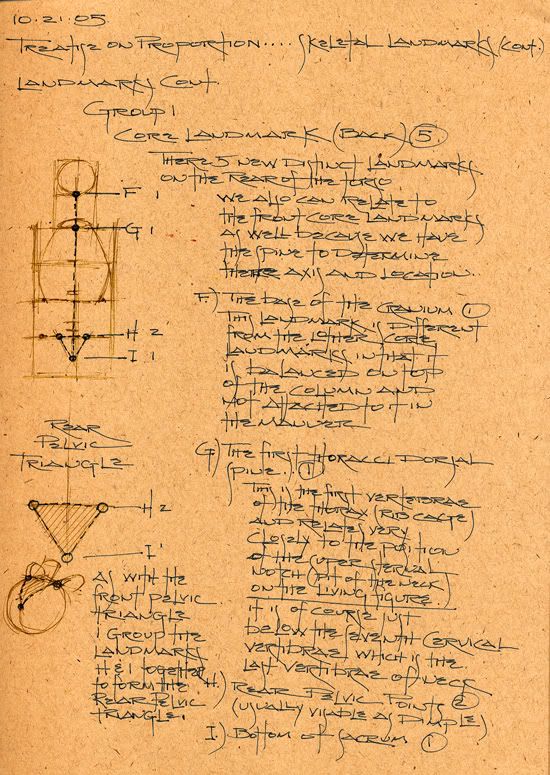 10.21.05
Treatise on Proportion.... Skeletal Landmarks (cont.)
Landmarks Cont.
Group 1
Core Landmark (Back) 5
There 5 new distinct landmarks
on the rear of the torso
we also can relate to
the front core landmarks
as well because we have
the spine to determine
there axis and location..
F 1
G 1
H 2
I 1
F.) The base of the cranium 1
This landmark is different
from the other core
landmarks in that it
is balanced on top
of the column and
not attached to it in
the manner
Rear
Pelvic
Triangle
H 2
I 1
G.) The first thoracci dorsal
spine... 1
This is the first vertebrae
of the thorax (rib cage)
and relates very
closely to the position
of the super sternal
notch (pit of the neck)
on the living figure..
it is of course just
below the seventh cervical
vertibrae which is the
last vertibrae of neck
as with the
front pelvic
triangle
I group the
landmarks
H & I together
to form the
rear pelvic
triangle.
H.) Rear pelvic points 2
(usually visable as dimples)
I.) Bottom of sacrum 1